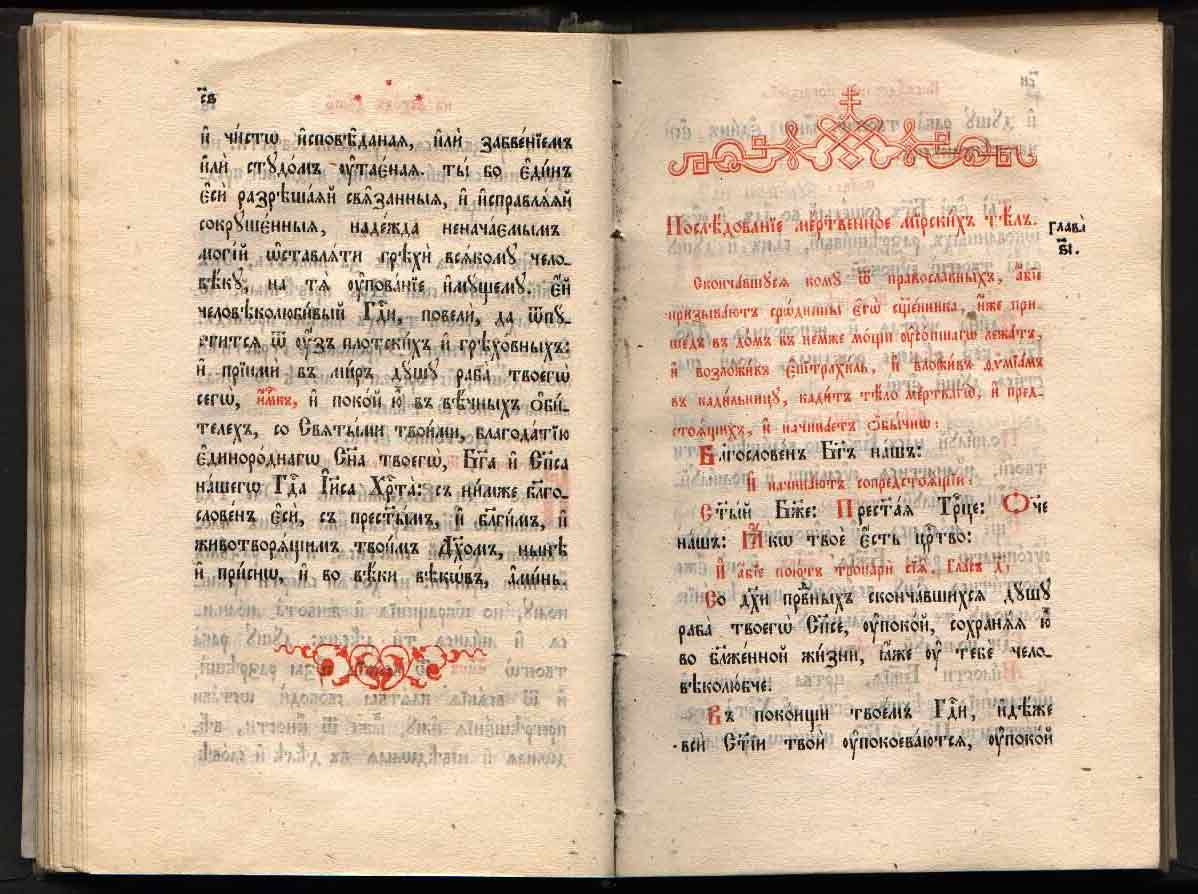 с҃в
и҆ чи́стѡ и҆сповѣ́даная, и҆лѝ забве́нїемъ
и҆лѝ студо́мъ ᲂу҆тає́ная. ты́ бо є҆ди́нъ
є҆сѝ разрѣша́яй свѧ́занныя, и҆ и҆справлѧ́яй
сокруше́нныя, наде́жда ненача́емымъ
могі́й ѡ҆ставлѧ́ти грѣхѝ всѧ́кому чело-
вѣ́ку, на тѧ̀ ᲂу҆пова́нїе и҆му́щему. є҆́й
человѣколюби́вый гд҇и, повелѝ, да ѿпу-
стится ѿ ᲂу҆́зъ плотски́хъ и҆ грѣхо́вныхъ:
и҆ прїимѝ въ ми́ръ ду́шу раба̀ твоегѡ̀
сегѡ̀, и҆м҃къ, и҆ поко́й ю҆̀ въ вѣ́чныхъ ѻ҆би́-
телехъ, со Свѧты́ми твои́ми, благода́тїю
є҆диноро́днагѡ Сн҃а твоегѡ̀, Бг҃а и҆ Сп҃са
на́шегѡ Гд҇а І҆и҃са Хр҇та̀: съ ни́мже бл҃го-
слове́нъ є҆сѝ, съ прест҃ы́мъ, и҆ бл҃ги́мъ, и҆
животворѧ́щимъ твои́мъ Дх҃омъ, ны́нѣ
и҆ при́снѡ, и҆ во вѣ́ки вѣкѡ́въ, а҆ми́нь.
Послѣ́дованїе ме́ртвенное мїрски́хъ тѣ́лъ.
Глава̀
в҃і.
Сконча́вшуся кому̀ ѿ правосла́вныхъ, а҆́бїе
призыва́ютъ сро́дницы є҆гѡ̀ сщ҃е́нника, и҆́же при-
ше́дъ въ до́мъ въ не́мже мо́щи ᲂу҆со́пшагѡ лежа́тъ,
и҆ возложи́въ є҆пїтрахи́ль, и҆ вложи́въ ѳѷмїа́мъ
въ кади́льницу, кади́тъ тѣ́ло ме́ртвагѡ, и҆ пред-
стоѧ́щихъ, и҆ начина́етъ ѻ҆бы́чнѡ:
Бл҃гослове́нъ Бг҃ъ на́шъ:
И҆ начина́ютъ сопредстоѧ́щїи:
Ст҃ы́й Бж҃е: Прест҃а́я Трⷪ҇це: Ѻ҆́че
на́шъ: Ꙗ҆́кѡ твоѐ є҆́сть црⷭ҇тво:
И҆ а҆́бїе пою́тъ тропарѝ сїѧ̑. Гла́съ д҃;
Со дх҃и првⷣныхъ сконча́вшихся ду́шу
раба̀ твоегѡ̀ Сп҃се, ᲂу҆поко́й, сохранѧ́я ю҆̀
во бл҃же́нной жи́зни, ꙗ҆́же ᲂу҆ тебѐ чело-
вѣколю́бче.
Въ поко́ищи твое́мъ Гд҇и, и҆дѣ́же
всѝ Ст҃і́и твоѝ ᲂу҆покоева́ются, ᲂу҆поко́й